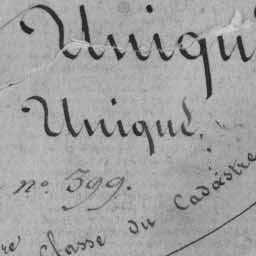 Uniqu
Unique.
nº 599.
re Classe du Cadastre